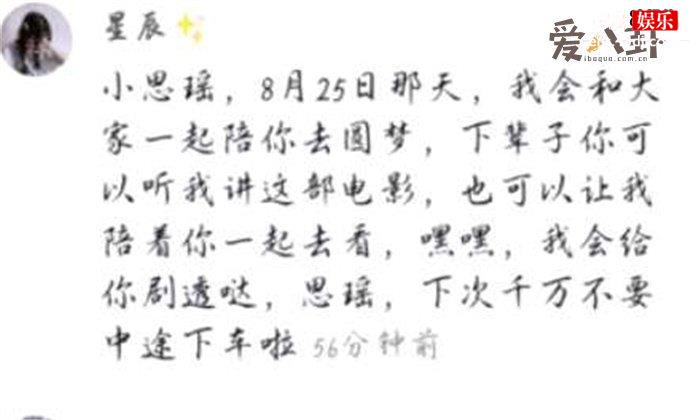 星辰✨
娱乐
爱八卦
ibagua.com.cn
小思瑶，8月25日那天，我会和大
家一起陪你去圆梦，下辈子你可
以听我讲这部电影，也可以让我
陪着你一起去看，嘿嘿，我会给
你剧透哒，思瑶，下次千万不要
中途下车啦 56分钟前